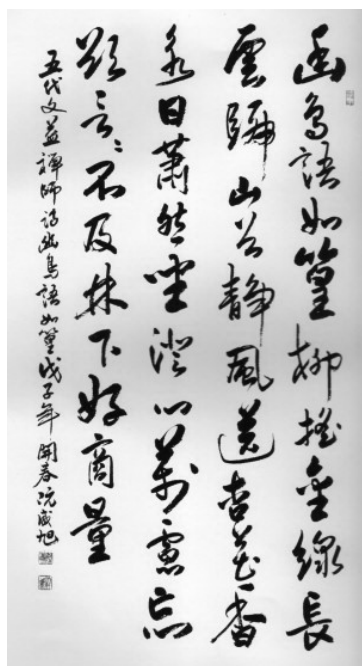 幽鳥語如篁柳搖金線長
雲歸山谷靜風送杏花香
永日蕭然坐澄心萬慮忘
欲言〻不及林下好商量
五代文益禪師詩幽鳥語如篁戊子年開春阮旭